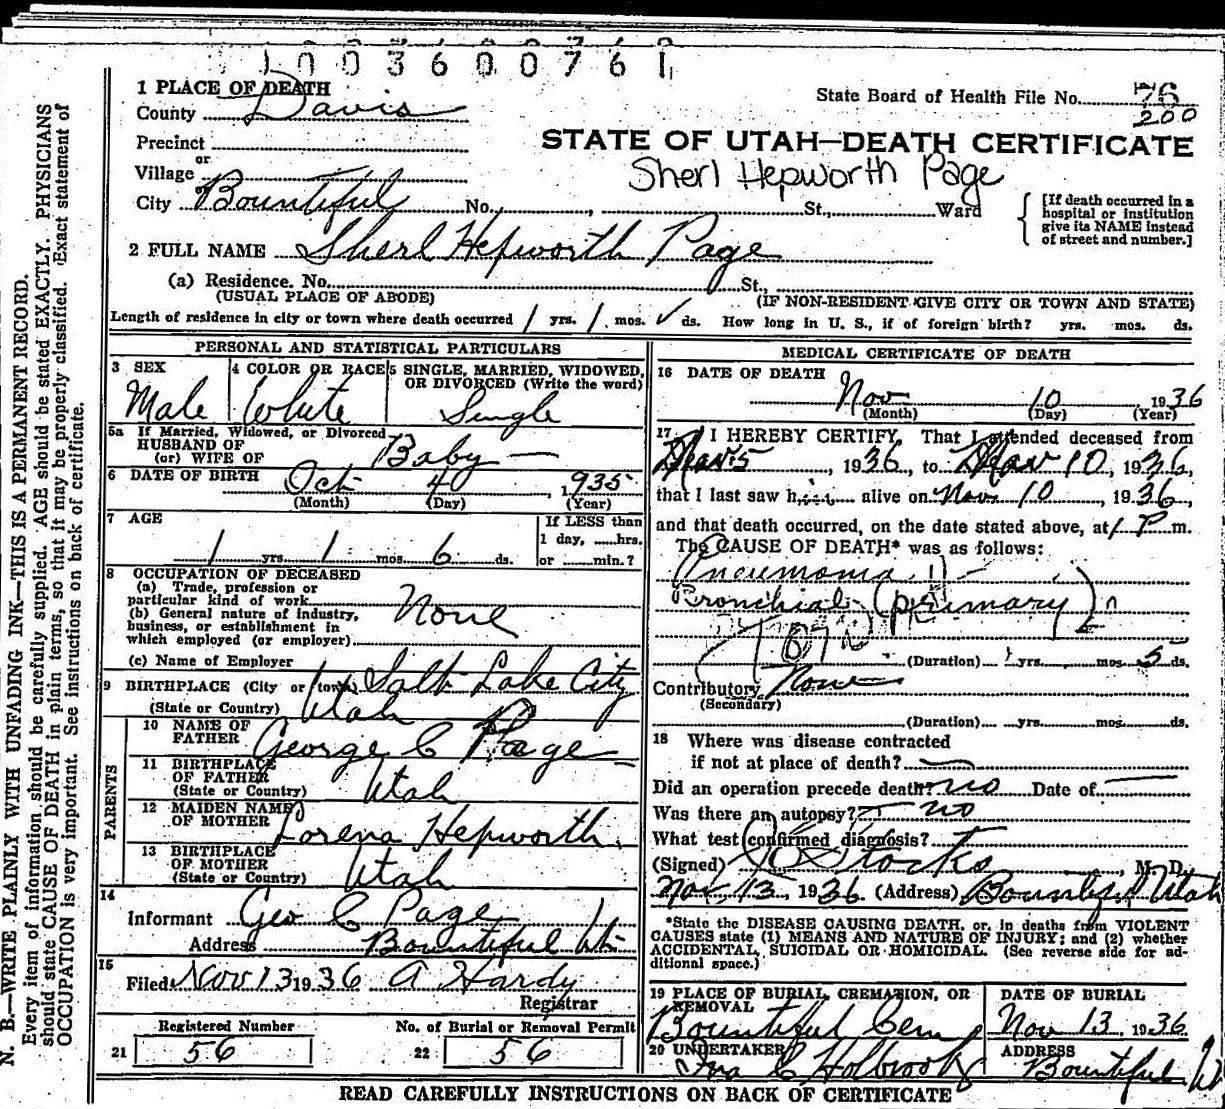 1003600761
1 PLACE OF DEATH
County Davis
State Board of Health File No. 76
200
Precinct
or
Village
STATE OF UTAH—DEATH CERTIFICATE
Sherl Hepworth Page
City Bountiful No. , St., Ward
[If death occurred in a hospital or institution give its NAME instead of street and number.]
2 FULL NAME Sherl Hepworth Page
(a) Residence. No. St.,
(USUAL PLACE OF ABODE) (IF NON-RESIDENT GIVE CITY OR TOWN AND STATE)
Length of residence in city or town where death occurred 1 yrs. 1 mos. ✓ ds. How long in U. S., if of foreign birth? yrs. mos. ds.
PERSONAL AND STATISTICAL PARTICULARS
3 SEX
Male
4 COLOR OR RACE
White
5 SINGLE, MARRIED, WIDOWED, OR DIVORCED (Write the word)
Single
5a If Married, Widowed, or Divorced
HUSBAND OF
(or) WIFE OF Baby —
6 DATE OF BIRTH Oct 4 , 1935
(Month) (Day) (Year)
7 AGE
1 yrs. 1 mos. 6 ds.
If LESS than
1 day, ......hrs.
or ........min.?
8 OCCUPATION OF DECEASED
(a) Trade, profession or
particular kind of work
(b) General nature of industry,
business, or establishment in
which employed (or employer)
None
(c) Name of Employer
9 BIRTHPLACE (City or town) Salt Lake City
(State or Country) Utah
PARENTS
10 NAME OF FATHER George C Page
11 BIRTHPLACE OF FATHER (State or Country) Utah
12 MAIDEN NAME OF MOTHER Lorena Hepworth
13 BIRTHPLACE OF MOTHER (State or Country) Utah
14
Informant Geo C Page
Address Bountiful Ut
15
Filed Nov 13 1936 A Hardy
Registrar
Registered Number
21 56
No. of Burial or Removal Permit
22 56
MEDICAL CERTIFICATE OF DEATH
16 DATE OF DEATH
Nov 10 1936
(Month) (Day) (Year)
17 I HEREBY CERTIFY, That I attended deceased from
Nov 5 , 1936, to Nov 10, 1936,
that I last saw him alive on Nov 10 , 1936,
and that death occurred, on the date stated above, at 1 P m.
The CAUSE OF DEATH* was as follows:
Pneumonia
Bronchial (primary)
107
(Duration) yrs. mos. 5 ds.
Contributory None
(Secondary)
(Duration) yrs. mos. ds.
18 Where was disease contracted
if not at place of death? —
Did an operation precede death? no Date of —
Was there an autopsy? no
What test confirmed diagnosis?
(Signed) Stocks , M. D.
Nov 13, 1936 (Address) Bountiful Utah
*State the DISEASE CAUSING DEATH, or, in deaths from VIOLENT
CAUSES state (1) MEANS AND NATURE OF INJURY; and (2) whether
ACCIDENTAL, SUICIDAL OR HOMICIDAL. (See reverse side for ad-
ditional space.)
19 PLACE OF BURIAL, CREMATION, OR REMOVAL
Bountiful Cem
DATE OF BURIAL
Nov 13, 1936
20 UNDERTAKER
Ira C Holbrook
ADDRESS
Bountiful Ut
READ CAREFULLY INSTRUCTIONS ON BACK OF CERTIFICATE
N. B.—WRITE PLAINLY WITH UNFADING INK—THIS IS A PERMANENT RECORD.
Every item of information should be carefully supplied. AGE should be stated EXACTLY. PHYSICIANS
should state CAUSE OF DEATH in plain terms, so that it may be properly classified. Exact statement of
OCCUPATION is very important. See instructions on back of certificate.